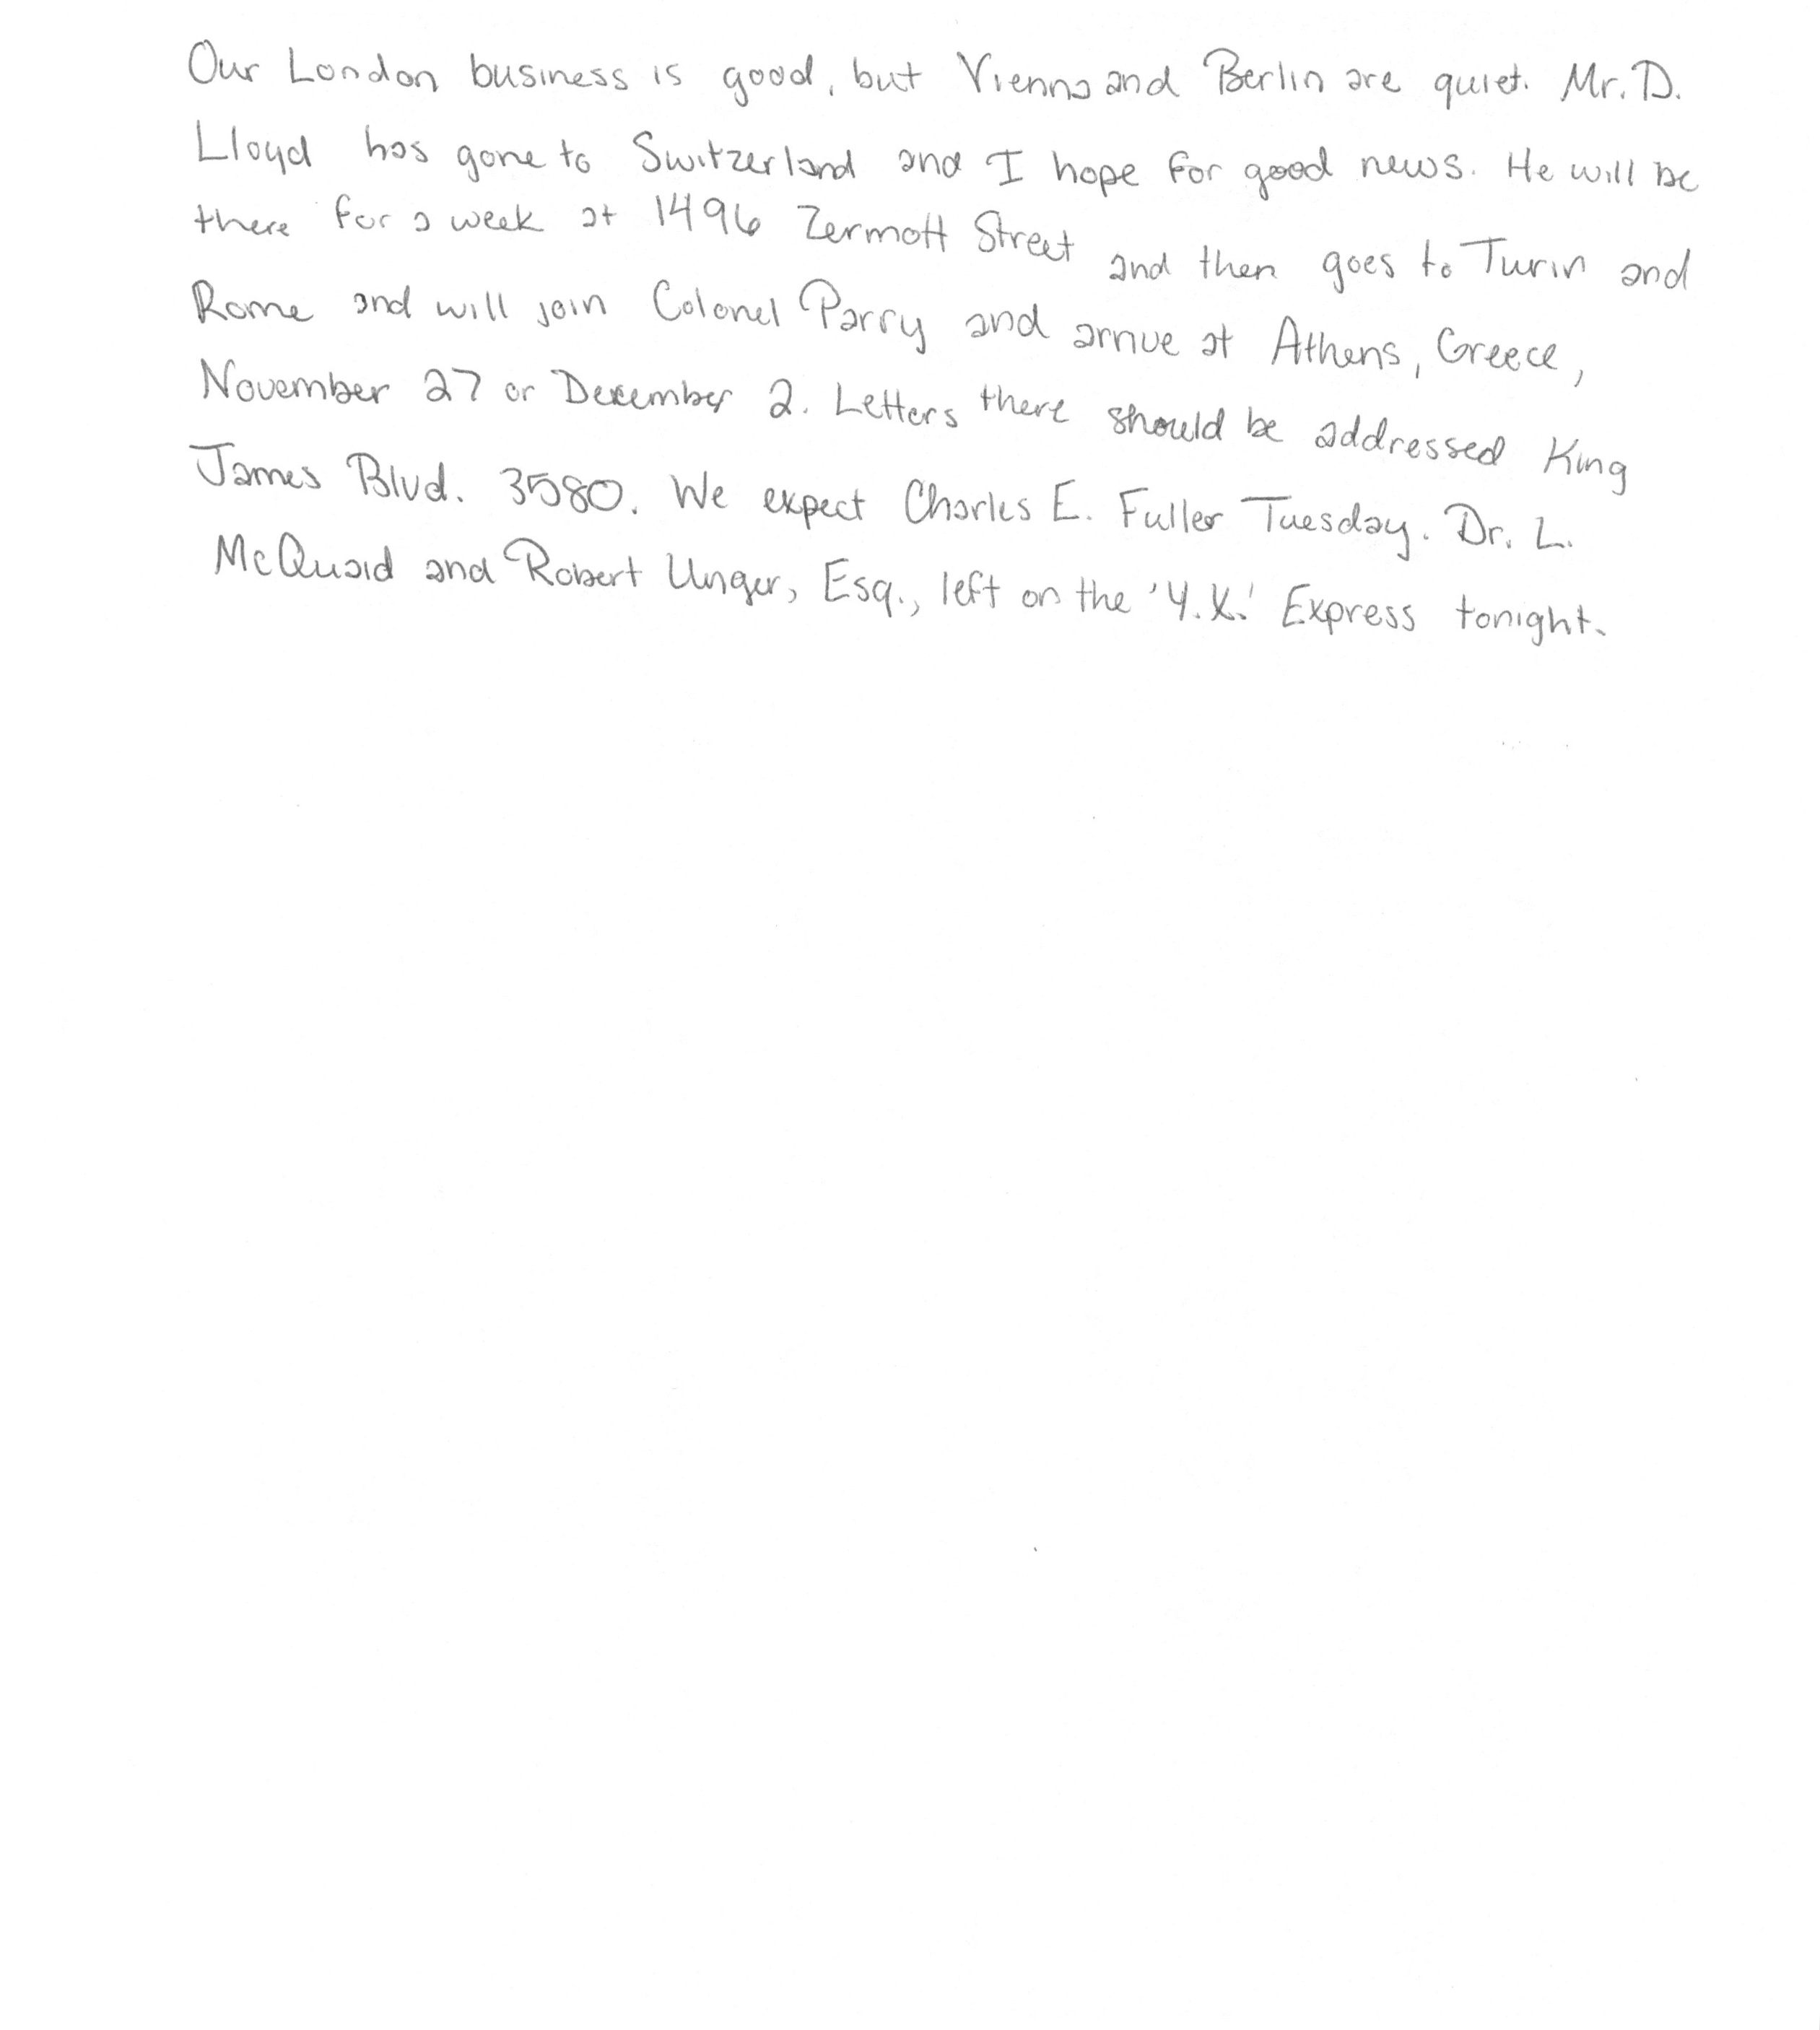 Our London business is good, but Vienna and Berlin are quiet. Mr. D.
Lloyd has gone to Switzerland and I hope for good news. He will be
there for a week at 1496 Zermott Street and then goes to Turin and
Rome and will join Colonel Parry and arrive at Athens, Greece,
November 27 or December 2. Letters there should be addressed King
James Blvd. 3580. We expect Charles E. Fuller Tuesday. Dr. L.
McQuaid and Robert Unger, Esq., left on the 'Y.X.' Express tonight.